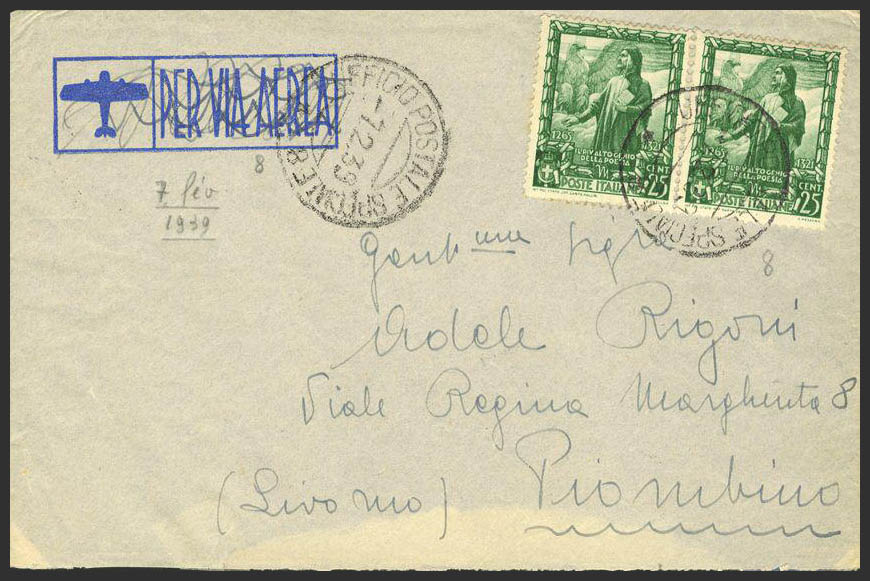 PER VIA AEREA
UFFICIO POSTALE SPECIALE 8
1.2.39
1265 1321
L'DI V ALTO GENIO
DELLA POESIA
POSTE ITALIANE
CENT 25
1265 1321
L'DI V ALTO GENIO
DELLA POESIA
POSTE ITALIANE
CENT 25
8
7 fév
1939
8
Gent.ma Sig.ra
Adele Rigoni
Viale Regina Margherita 8
(Livorno) Piombino